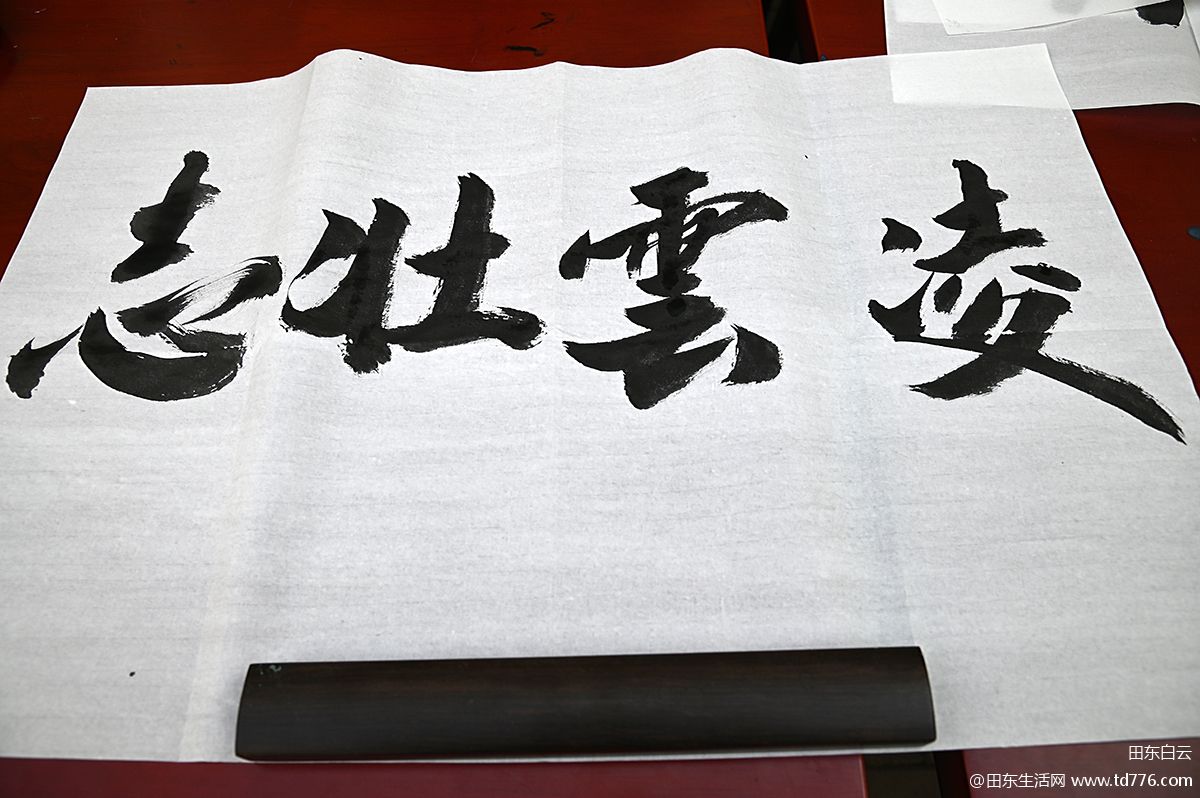 凌雲壮志
田东白云
@田东生活网 www.td776.com